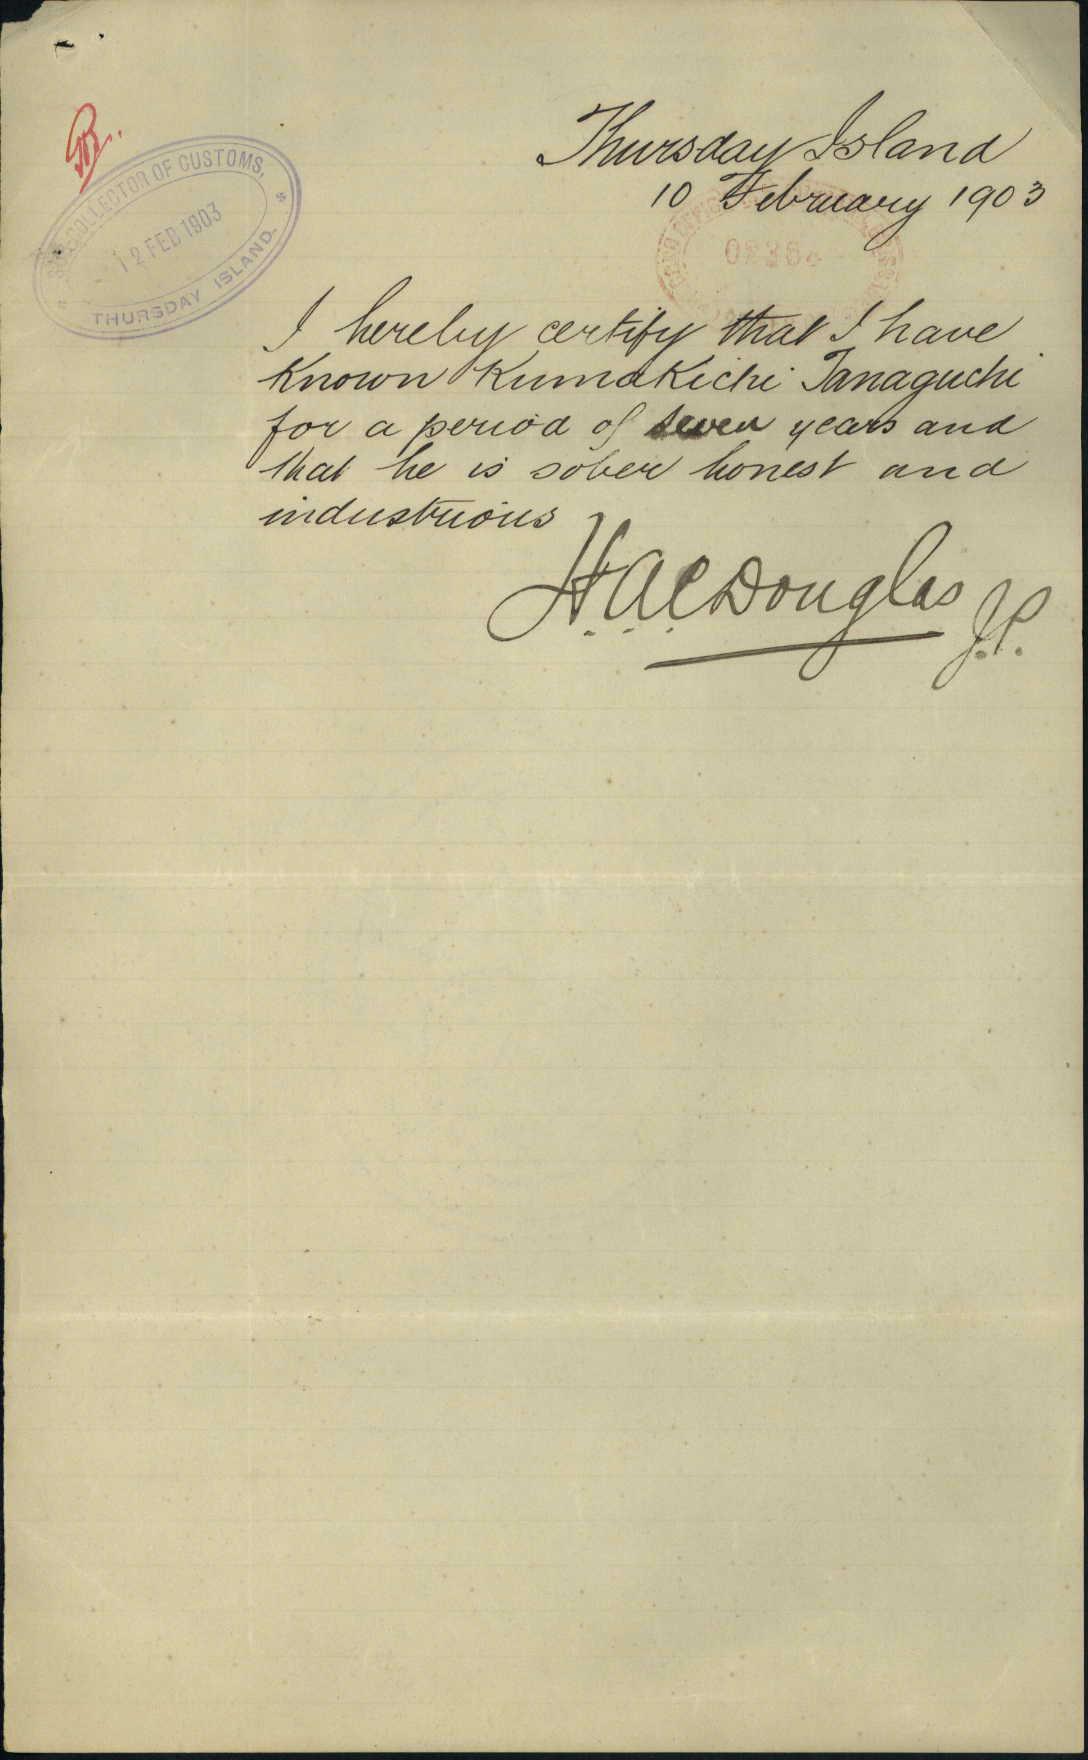 Thursday Island
10 February 1903
COLLECTOR OF CUSTOMS,
12 FEB 1903
THURSDAY ISLAND.
I hereby certify that I have
known Kumakichi Tanaguchi
for a period of seven years and
that he is sober honest and
industrious
H.A.C. Douglas
J.P.